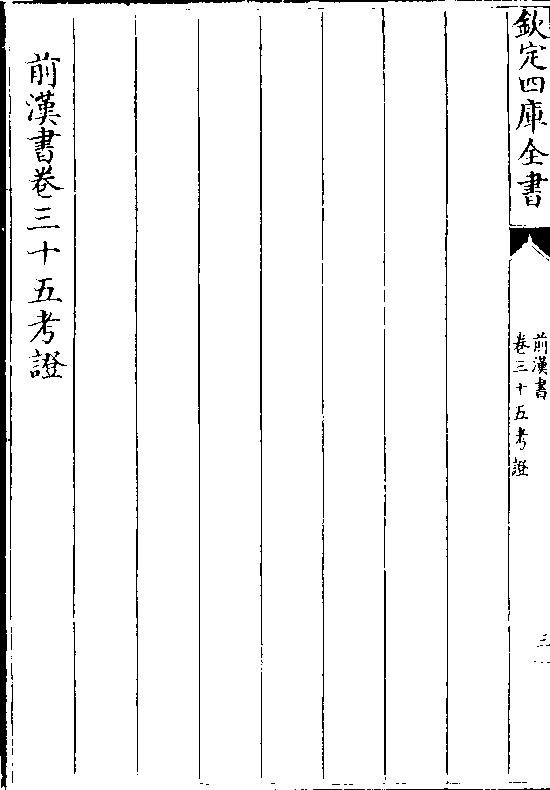 欽定四庫全書
前漢書
卷三十五考證
三
前漢書卷三十五考證